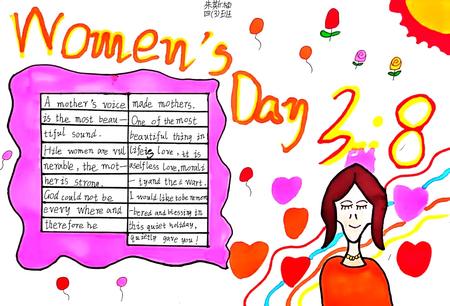 四(3)班
Women's
Day
3.8
A mother's voice
is the most beau—
tiful sound.
Hile women are vul
nerable, the mot—
her is strong.
God could not be
every where and
therefore he
made mothers.
One of the most
beautiful thing in
life is love, it is
aselfless love,
—tyand the
I would like to be remem
—bered and blessing in
this quiet holiday,
quietly gave you!